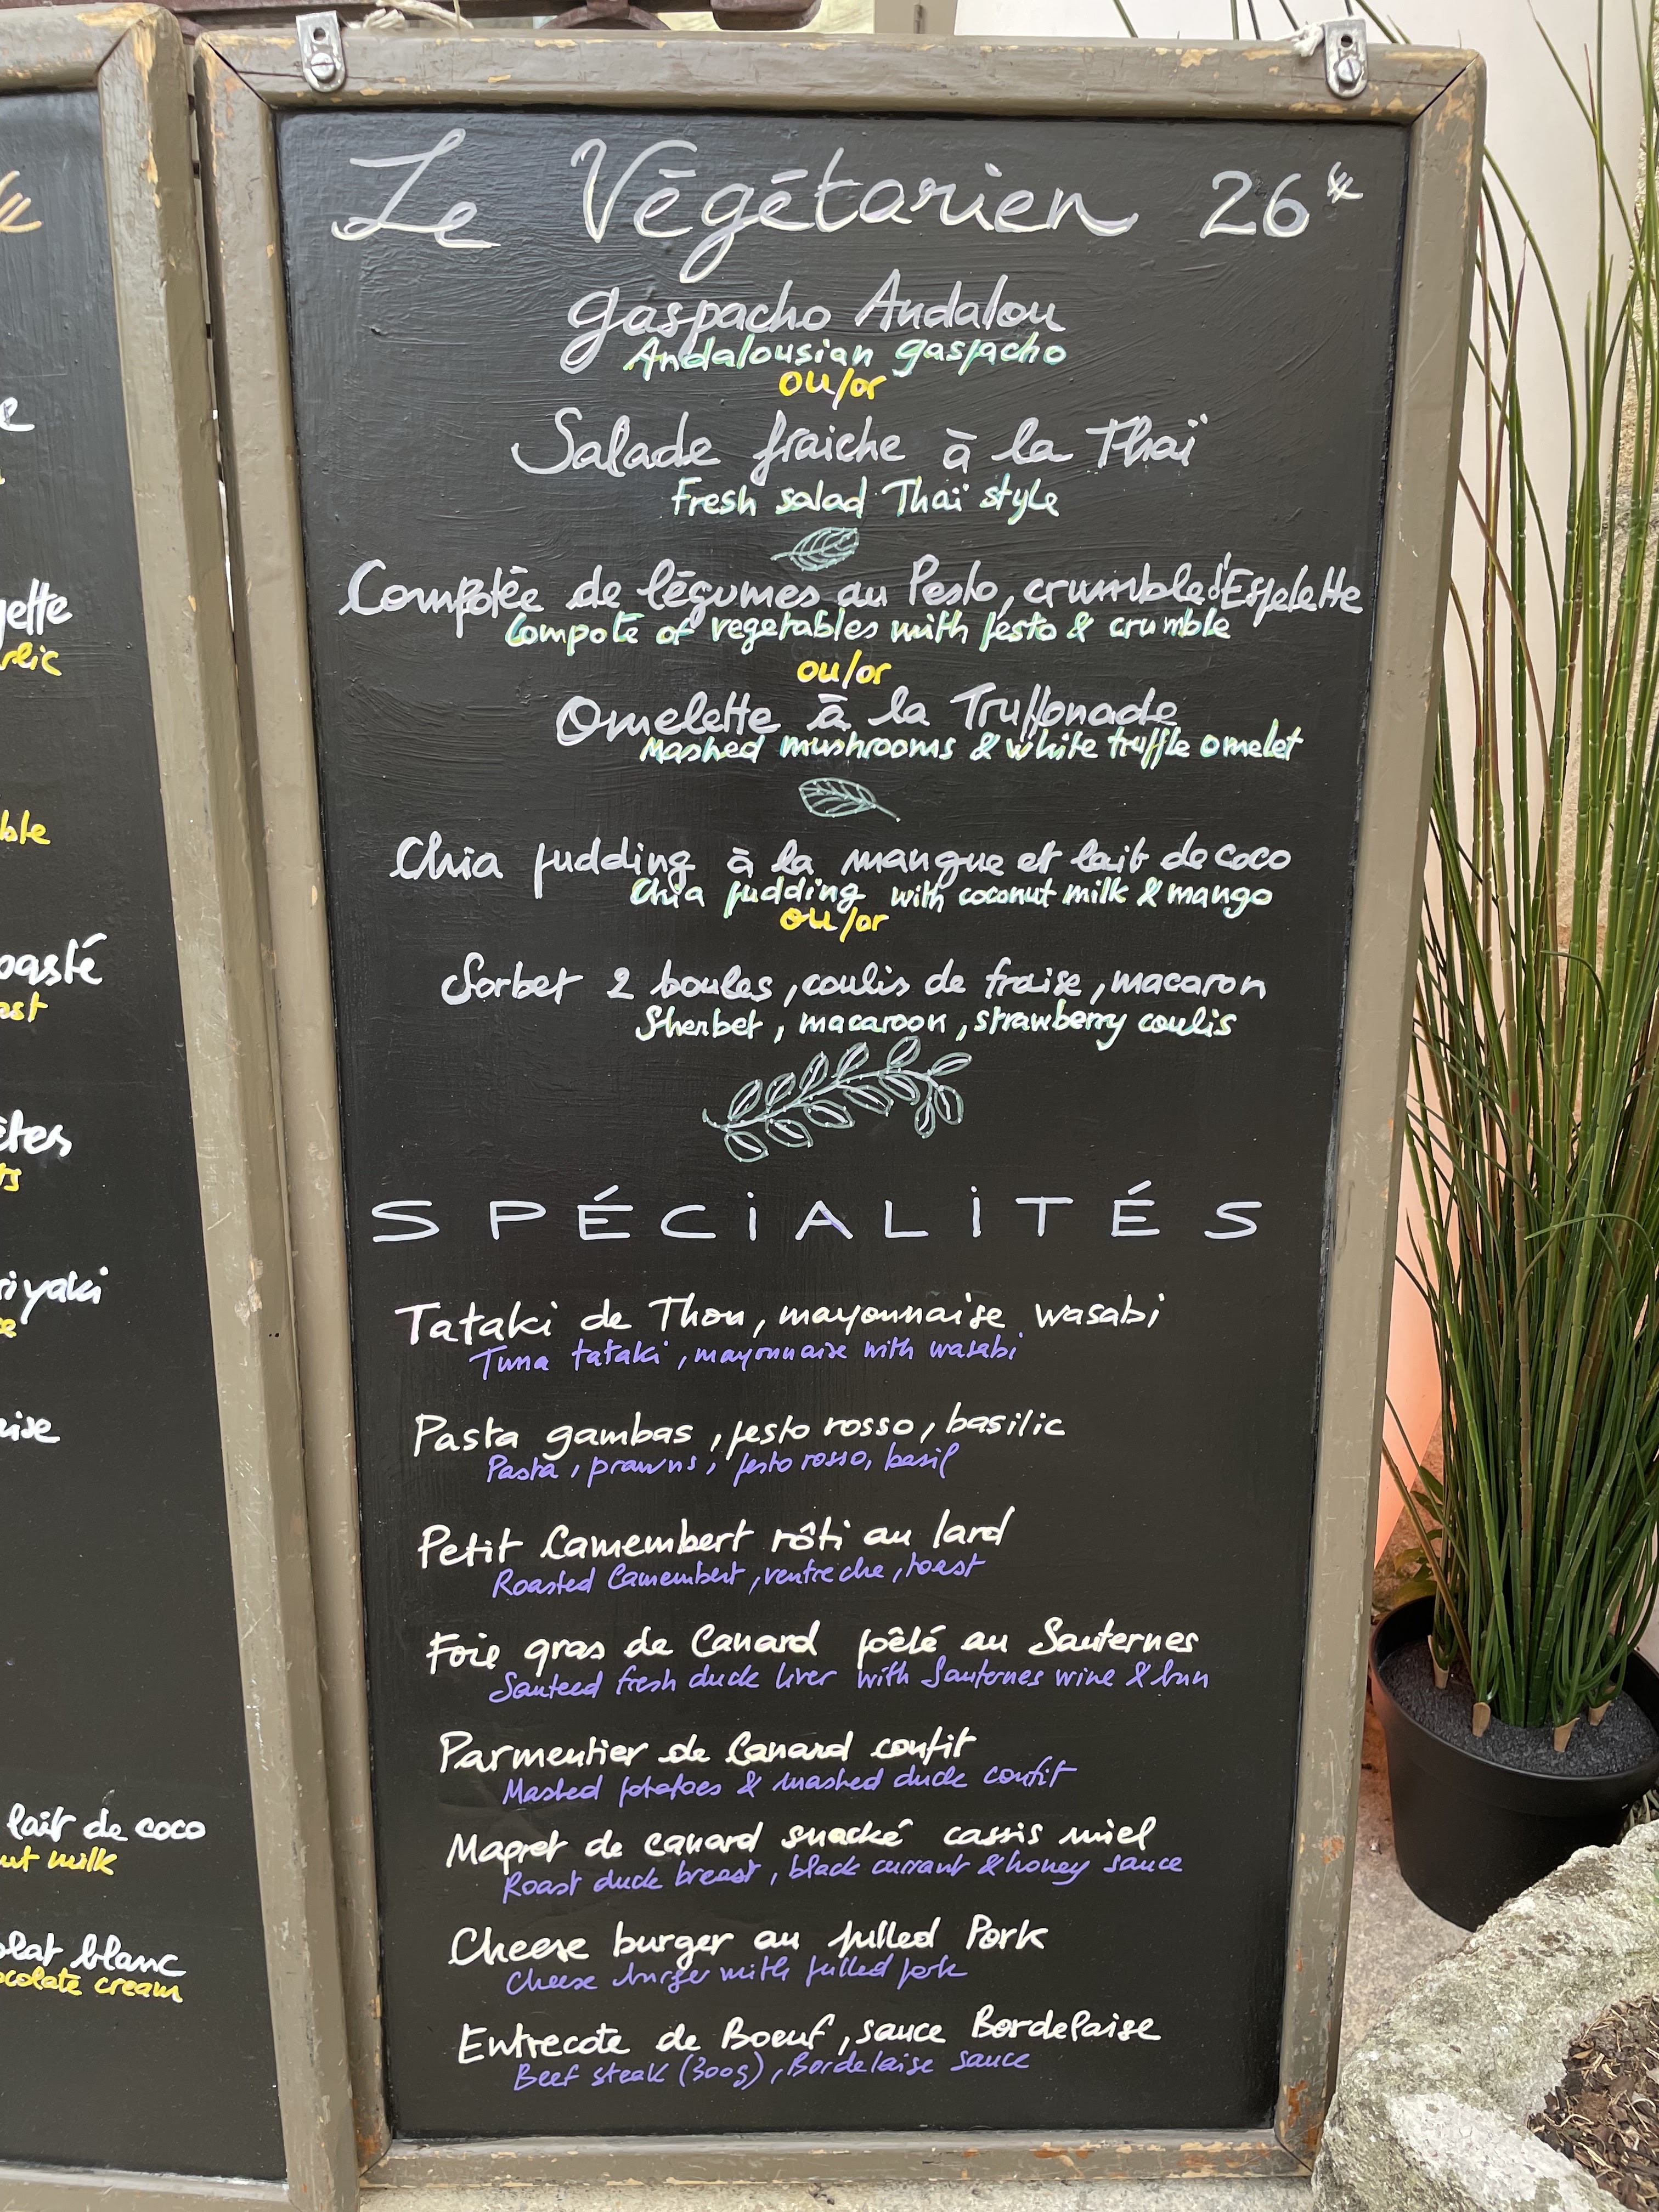 Le Végétarien 26€
gaspacho Andalou
Andalousian gaspacho
ou/or
Salade fraiche à la Thaï
Fresh salad Thaï style
Compotée de légumes au Pesto, crumble d'Espelette
Compote of vegetables with pesto & crumble
ou/or
Omelette à la Truffonade
Mashed mushrooms & white truffle omelet
Chia pudding à la mangue et lait de coco
Chia pudding with coconut milk & mango
ou/or
Sorbet 2 boules, coulis de fraise, macaron
Sherbet, macaroon, strawberry coulis
SPÉCIALITÉS
Tataki de Thon, mayonnaise wasabi
Tuna tataki, mayonnaise with wasabi
Pasta gambas, pesto rosso, basilic
Pasta, prawns, pesto rosso, basil
Petit Camembert rôti au lard
Roasted Camembert, ventreche, toast
Foie gras de Canard pôêlé au Sauternes
Sauteed fresh duck liver with Sauternes wine & bun
Parmentier de Canard confit
Mashed potatoes & mashed duck confit
Magret de canard snacké cassis miel
Roast duck breast, black currant & honey sauce
Cheese burger au pulled Pork
Cheese burger with pulled pork
Entrecote de Boeuf, sauce Bordelaise
Beef steak (300g), Bordelaise sauce
lait de coco
ut milk
olat blanc
ocolate cream